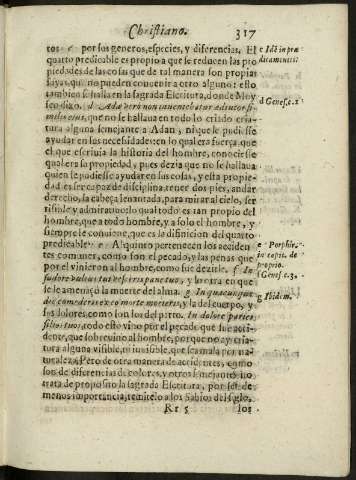 Christiano. 317
tos e por los generos, especies, y diferencias. El
quarto predicable es propio a que se reducen las pro
piedades de las cosas que de tal manera son propias
suyas, que no pueden conuenir a otro alguno: esto
tambien se halla en la sagrada Escritura, donde Moy
sen dixo. d Adæ verò non inueniebatur adiutor si-
milis eius, que no se hallaua en todo lo criado cria-
tura alguna semejante a Adan, ni que le pudiesse
ayudar en sus necesidades: en lo qual era fuerça que
el que escriuia la historia del hombre, conociesse
qual era su propiedad, pues dezia que no se hallaua
quien le pudiesse ayudar en sus cosas, y esta propie
dad es ser capaz de disciplina, tener dos pies, andar
derecho, la cabeça leuantada, para mirar al cielo, ser
risible y admiratiuo: lo qual todo es tan propio del
hombre, que a todo hombre, y a solo el hombre, y
siempre le conuiene, que es la difinicion del quarto
predicable e Al quinto pertenecen los acciden
tes comunes, como son el pecado, y las penas que
por el vinieron al hombre, como fue dezirle. f In
sudore vultus tui vesceris pane tuo, y la otra en que
se le amenaçò la muerte del alma. g In quacunque
die comederis ex eo morte morieris, y la del cuerpo, y
los dolores como son los del parto. In dolore paries
filios tuos, todo esto vino por el pecado que fue acci
dente, que sobreuino al hombre, porque no ay cria-
tura alguna visible, ni inuisible, que sea mala por na
turaleza. Pero de otra manera de accidentes, como
son de diferencias de colores, y otros semejantes no
trata de proposito la sagrada Escritura, por ser de
menos importancia, remitelo a los Sabios del siglo,
Rr 5 los
e Idẽ in præ
dicamentis
d Genes. c. 2
e Porphir.
in capit. de
proprio.
f Genes. c. 3.
g Ibidem.